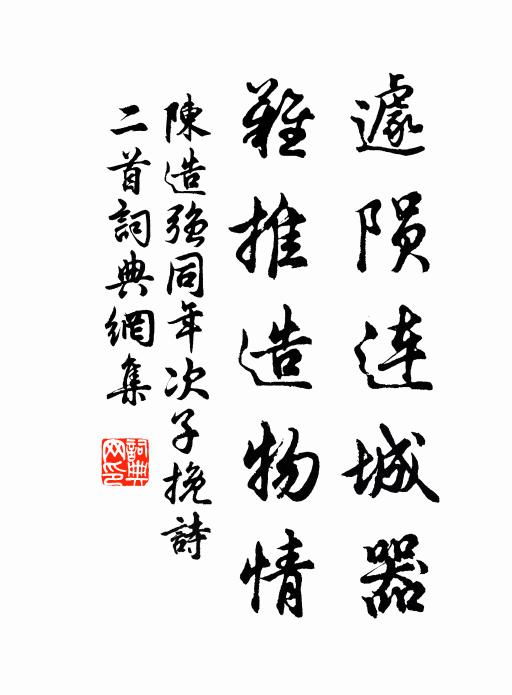 遽陨连城器
難推造物情
陳造強同年次子挽詩
二首詞典網集
詞典网印